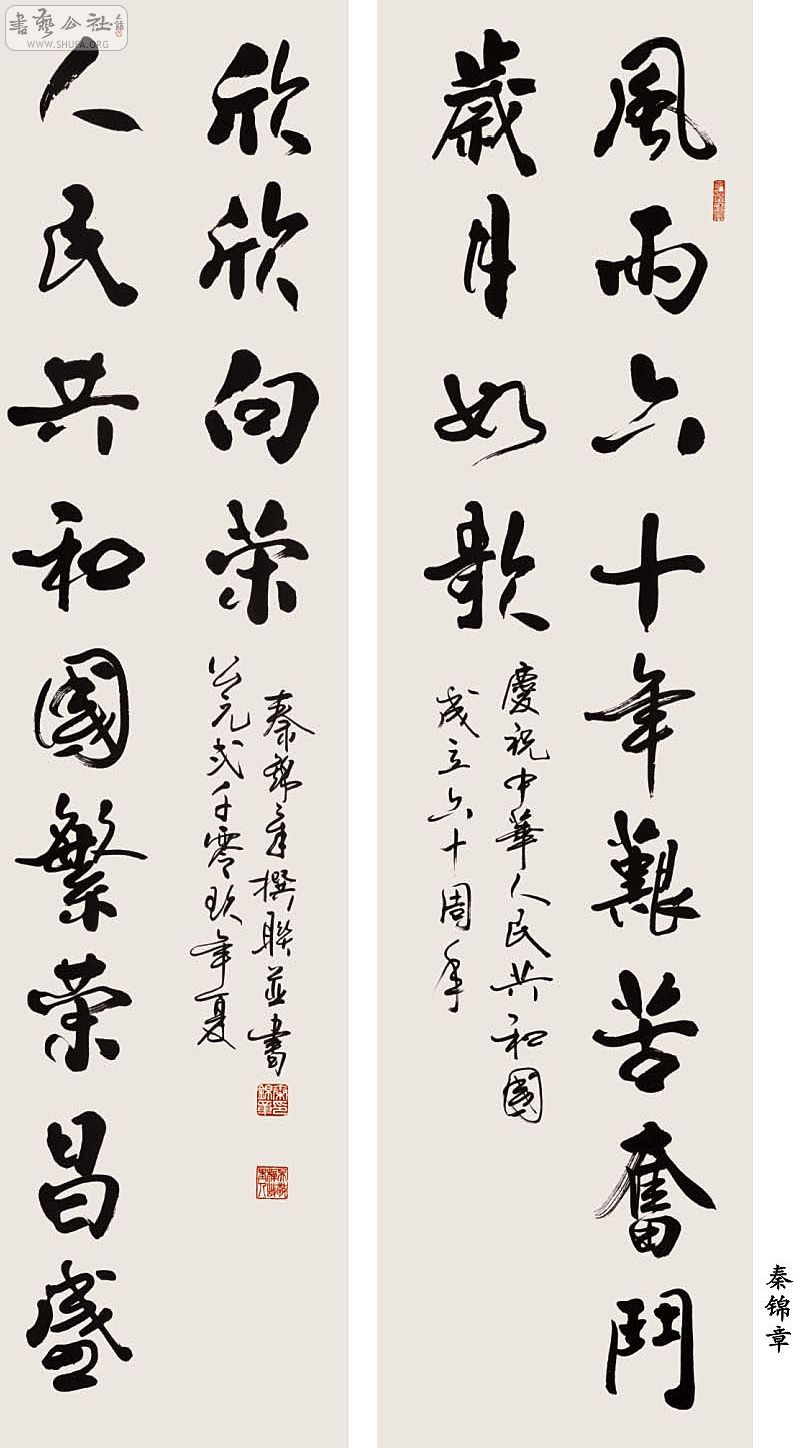 書藝公社
WWW.SHUFA.ORG
風雨六十年艱苦奮鬥
歲月如歌
慶祝中華人民共和國
成立六十周年
人民共和國繁荣昌盛
欣欣向荣
公元弍千零玖年夏
秦錦章撰聯並書
秦锦章